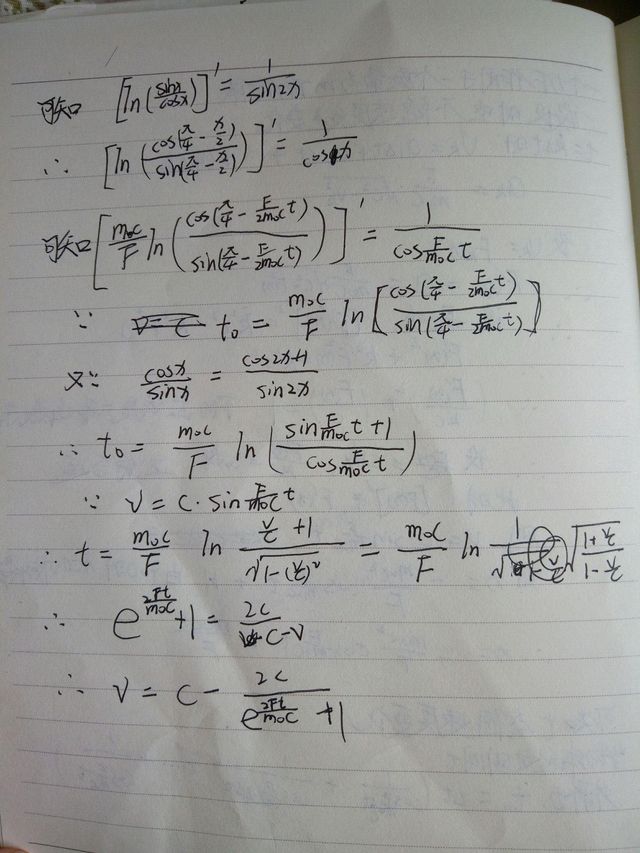 可知 [ln(sinx/cosx)]' = 1/sin2x
∴ [ln(cos(π/4 - x/2)/sin(π/4 - x/2))]' = 1/cosx
可知 [m₀c/F ln(cos(π/4 - F/2m₀c t)/sin(π/4 - F/2m₀c t))]' = 1/cos F/m₀c t
∵ t₀ = m₀c/F ln[cos(π/4 - F/2m₀c t)/sin(π/4 - F/2m₀c t)]
又∵ cosx/sinx = cos2x+1/sin2x
∴ t₀ = m₀c/F ln(sin F/m₀c t + 1/cos F/m₀c t)
∵ v = c · sin F/m₀c t
∴ t = m₀c/F ln v/c + 1/√1-(v/c)² = m₀c/F ln √1+v/c/1-v/c
∴ e^(2Ft/m₀c) + 1 = 2c/c-v
∴ v = c - 2c/e^(2Ft/m₀c) + 1